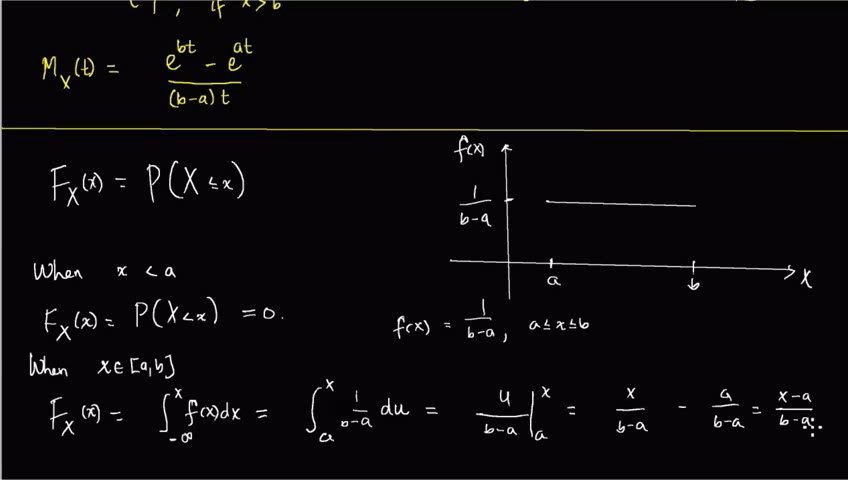 , if x > b
M_X(t) = (e^{bt} - e^{at}) / ((b-a)t)
F_X(x) = P(X ≤ x)
f(x)
1/(b-a)
a b x
When x < a
F_X(x) = P(X < x) = 0.
f(x) = 1/(b-a), a ≤ x ≤ b
When x ∈ [a,b]
F_X(x) = ∫_{-∞}^{x} f(x)dx = ∫_{a}^{x} 1/(b-a) du = u/(b-a) |_{a}^{x} = x/(b-a) - a/(b-a) = (x-a)/(b-a)